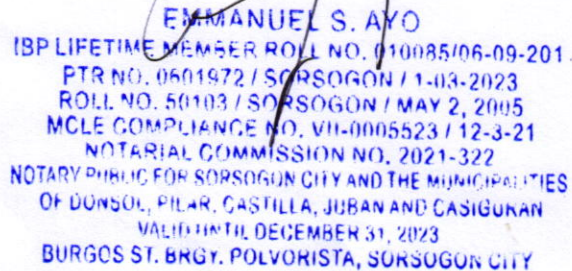 EMMANUEL S. AYO
IBP LIFETIME MEMBER ROLL NO. 010085/06-09-201
PTR NO. 0601972 / SORSOGON / 1-03-2023
ROLL NO. 50103 / SORSOGON / MAY 2, 2005
MCLE COMPLIANCE NO. VII-0005523 / 12-3-21
NOTARIAL COMMISSION NO. 2021-322
NOTARY PUBLIC FOR SORSOGON CITY AND THE MUNICIPALITIES
OF DONSOL, PILAR, CASTILLA, JUBAN AND CASIGURAN
VALID UNTIL DECEMBER 31, 2023
BURGOS ST. BRGY. POLVORISTA, SORSOGON CITY